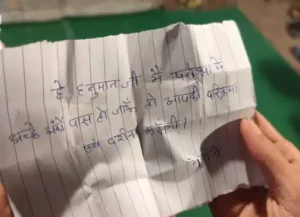 हे हनुमान जी में परीक्षा में
अच्छे अंकों पास हो जाऊँ तो आपकी परिक्रमा
एवं दर्शन करूँगी।